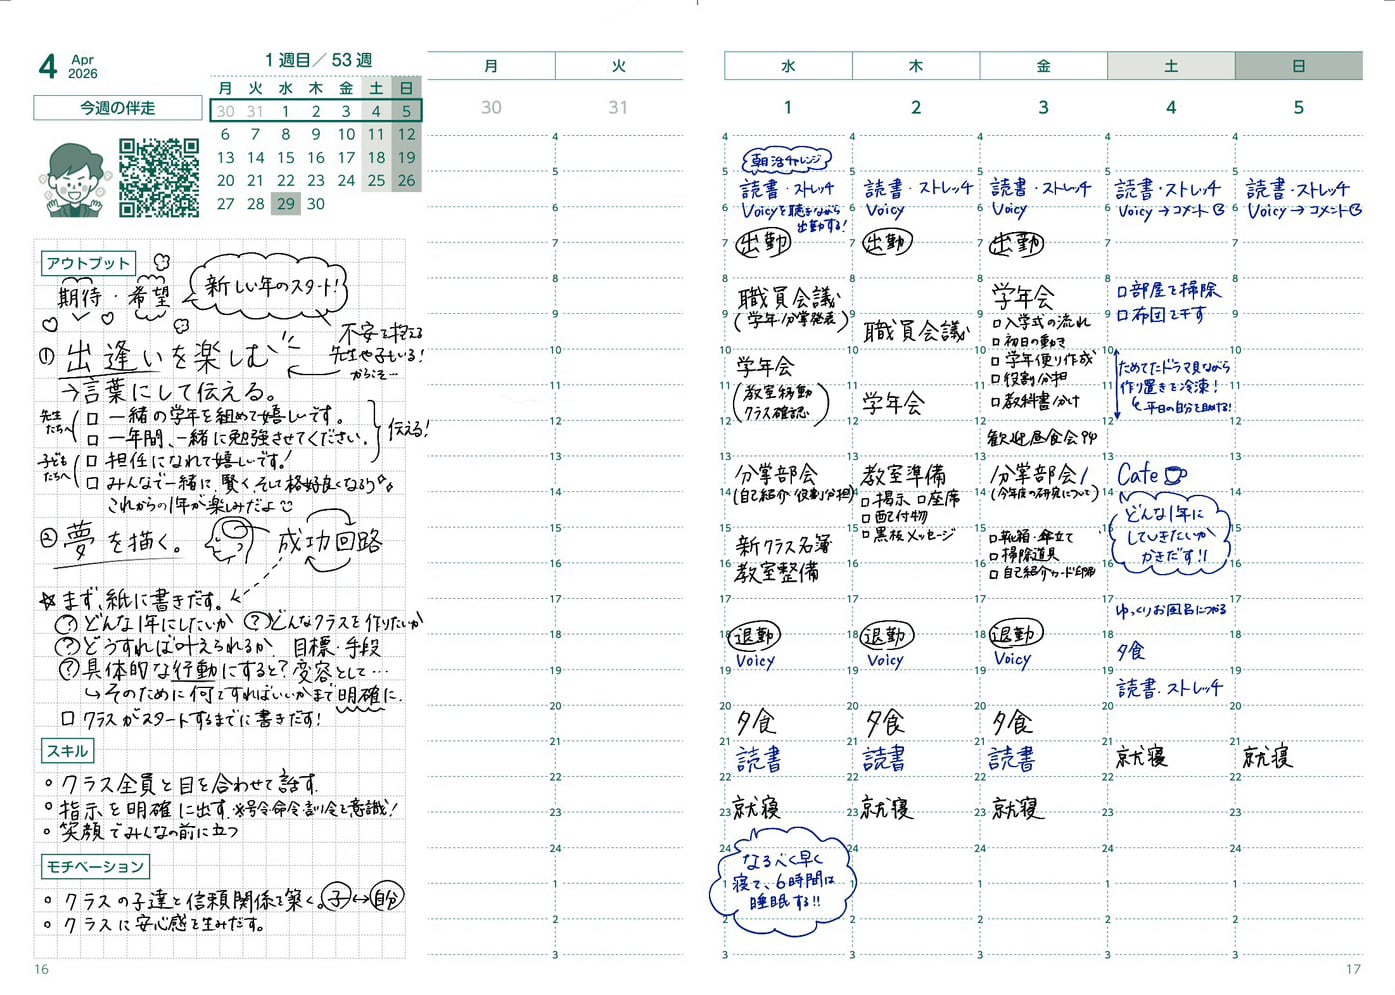 4 Apr
2026
1週目／53週
月 火 水 木 金 土 日
30 31 1 2 3 4 5
6 7 8 9 10 11 12
13 14 15 16 17 18 19
20 21 22 23 24 25 26
27 28 29 30
今週の伴走
アウトプット
期待・希望
新しい年のスタート!
① 出逢いを楽しむ
不安を抱える
先生や子もいる!
からこそ…
→言葉にして伝える。
先生たちへ
□ 一緒の学年を組めて嬉しいです。
□ 一年間、一緒に勉強させてください。
伝える!
子どもたちへ
□ 担任になれて嬉しいです!
□ みんなで一緒に、賢く、そして格好良くなろう
これからの1年が楽しみだよ
② 夢を描く。
成功回路
☆まず、紙に書きだす。
?どんな1年にしたいか ?どんなクラスを作りたいか
?どうすれば叶えられるか 目標・手段
?具体的な行動にすると? 変容として…
↳そのために何をすればいいかまで明確に。
□ クラスがスタートするまでに書きだす!
スキル
○ クラス全員と目を合わせて話す
○ 指示を明確に出す ※号令・命令・訓令を意識!
○ 笑顔でみんなの前に立つ
モチベーション
○ クラスの子達と信頼関係を築く。子↔自分
○ クラスに安心感を生みだす。
16
月
30
火
31
4
5
6
7
8
9
10
11
12
13
14
15
16
17
18
19
20
21
22
23
24
1
2
3
水
1
朝活チャレンジ
読書・ストレッチ
Voicyを聴きながら
出勤する!
出勤
職員会議
(学年・分掌発表)
学年会
(教室移動
クラス確認)
分掌部会
(自己紹介 役割分担)
新クラス名簿
教室整備
退勤
Voicy
夕食
読書
就寝
なるべく早く
寝て、6時間は
睡眠する!!
木
2
読書・ストレッチ
Voicy
出勤
職員会議
学年会
教室準備
□掲示 □座席
□配付物
□黒板メッセージ
退勤
Voicy
夕食
読書
就寝
金
3
読書・ストレッチ
Voicy
出勤
学年会
□入学式の流れ
□初日の動き
□学年便り作成
□役割分担
□教科書分け
歓迎昼食会
分掌部会
(今年度の研究について)
□靴箱・傘立て
□掃除道具
□自己紹介カード印刷
退勤
Voicy
夕食
読書
就寝
土
4
読書・ストレッチ
Voicy → コメント
□部屋を掃除
□布団を干す
ためてたドラマ見ながら
作り置きを冷凍!
平日の自分を助ける!
Cafe
どんな1年に
していきたいか
かきだす!!
ゆっくりお風呂につかる
夕食
読書・ストレッチ
就寝
日
5
読書・ストレッチ
Voicy → コメント
就寝
17